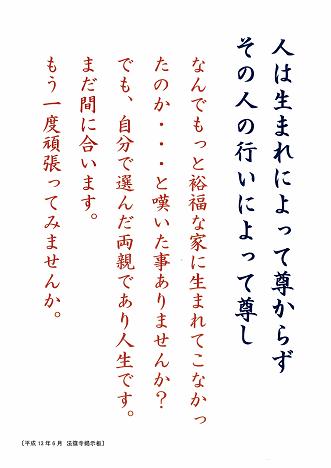 人は生まれによって尊からず
その人の行いによって尊し
なんでもっと裕福な家に生まれてこなかっ
たのか・・・と嘆いた事ありませんか？
でも、自分で選んだ両親であり人生です。
まだ間に合います。
もう一度頑張ってみませんか。
［平成13年6月 法蔵寺掲示板］